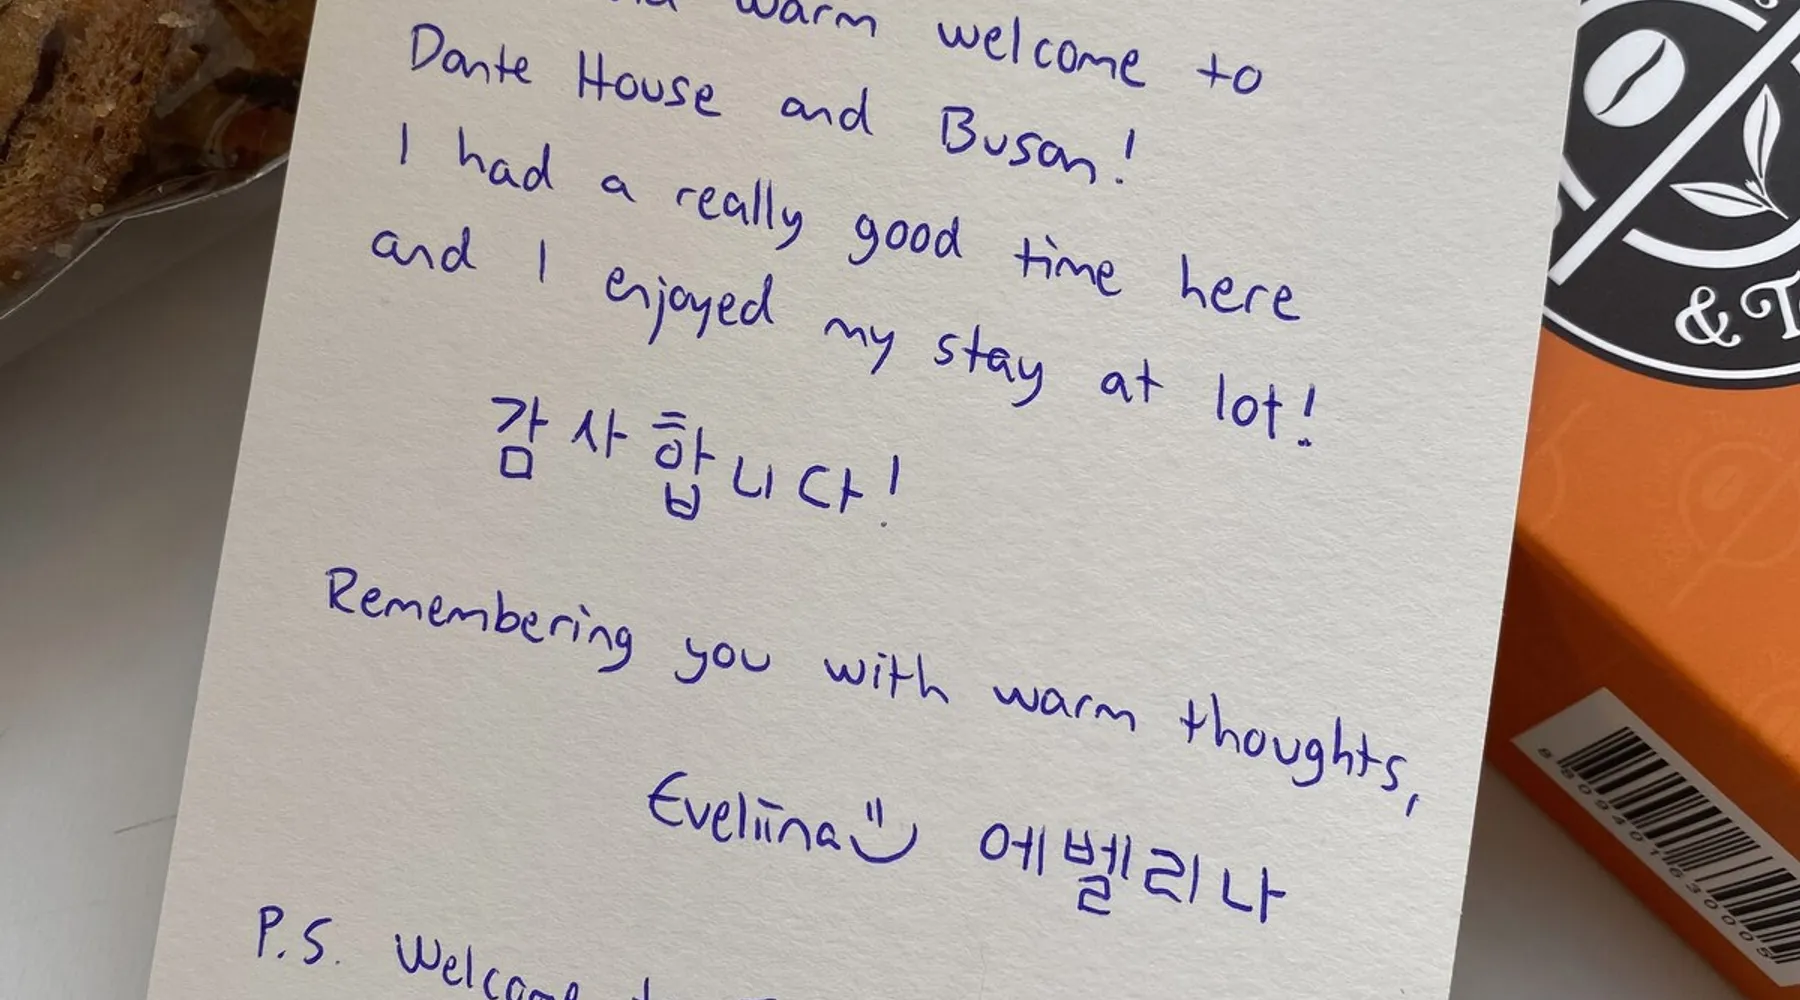 warm welcome to
Dante House and Busan!
I had a really good time here
and I enjoyed my stay at lot!
감사합니다!
Remembering you with warm thoughts,
Eveliina 에벨리나
P.S. Welcome
& T
8809401630005